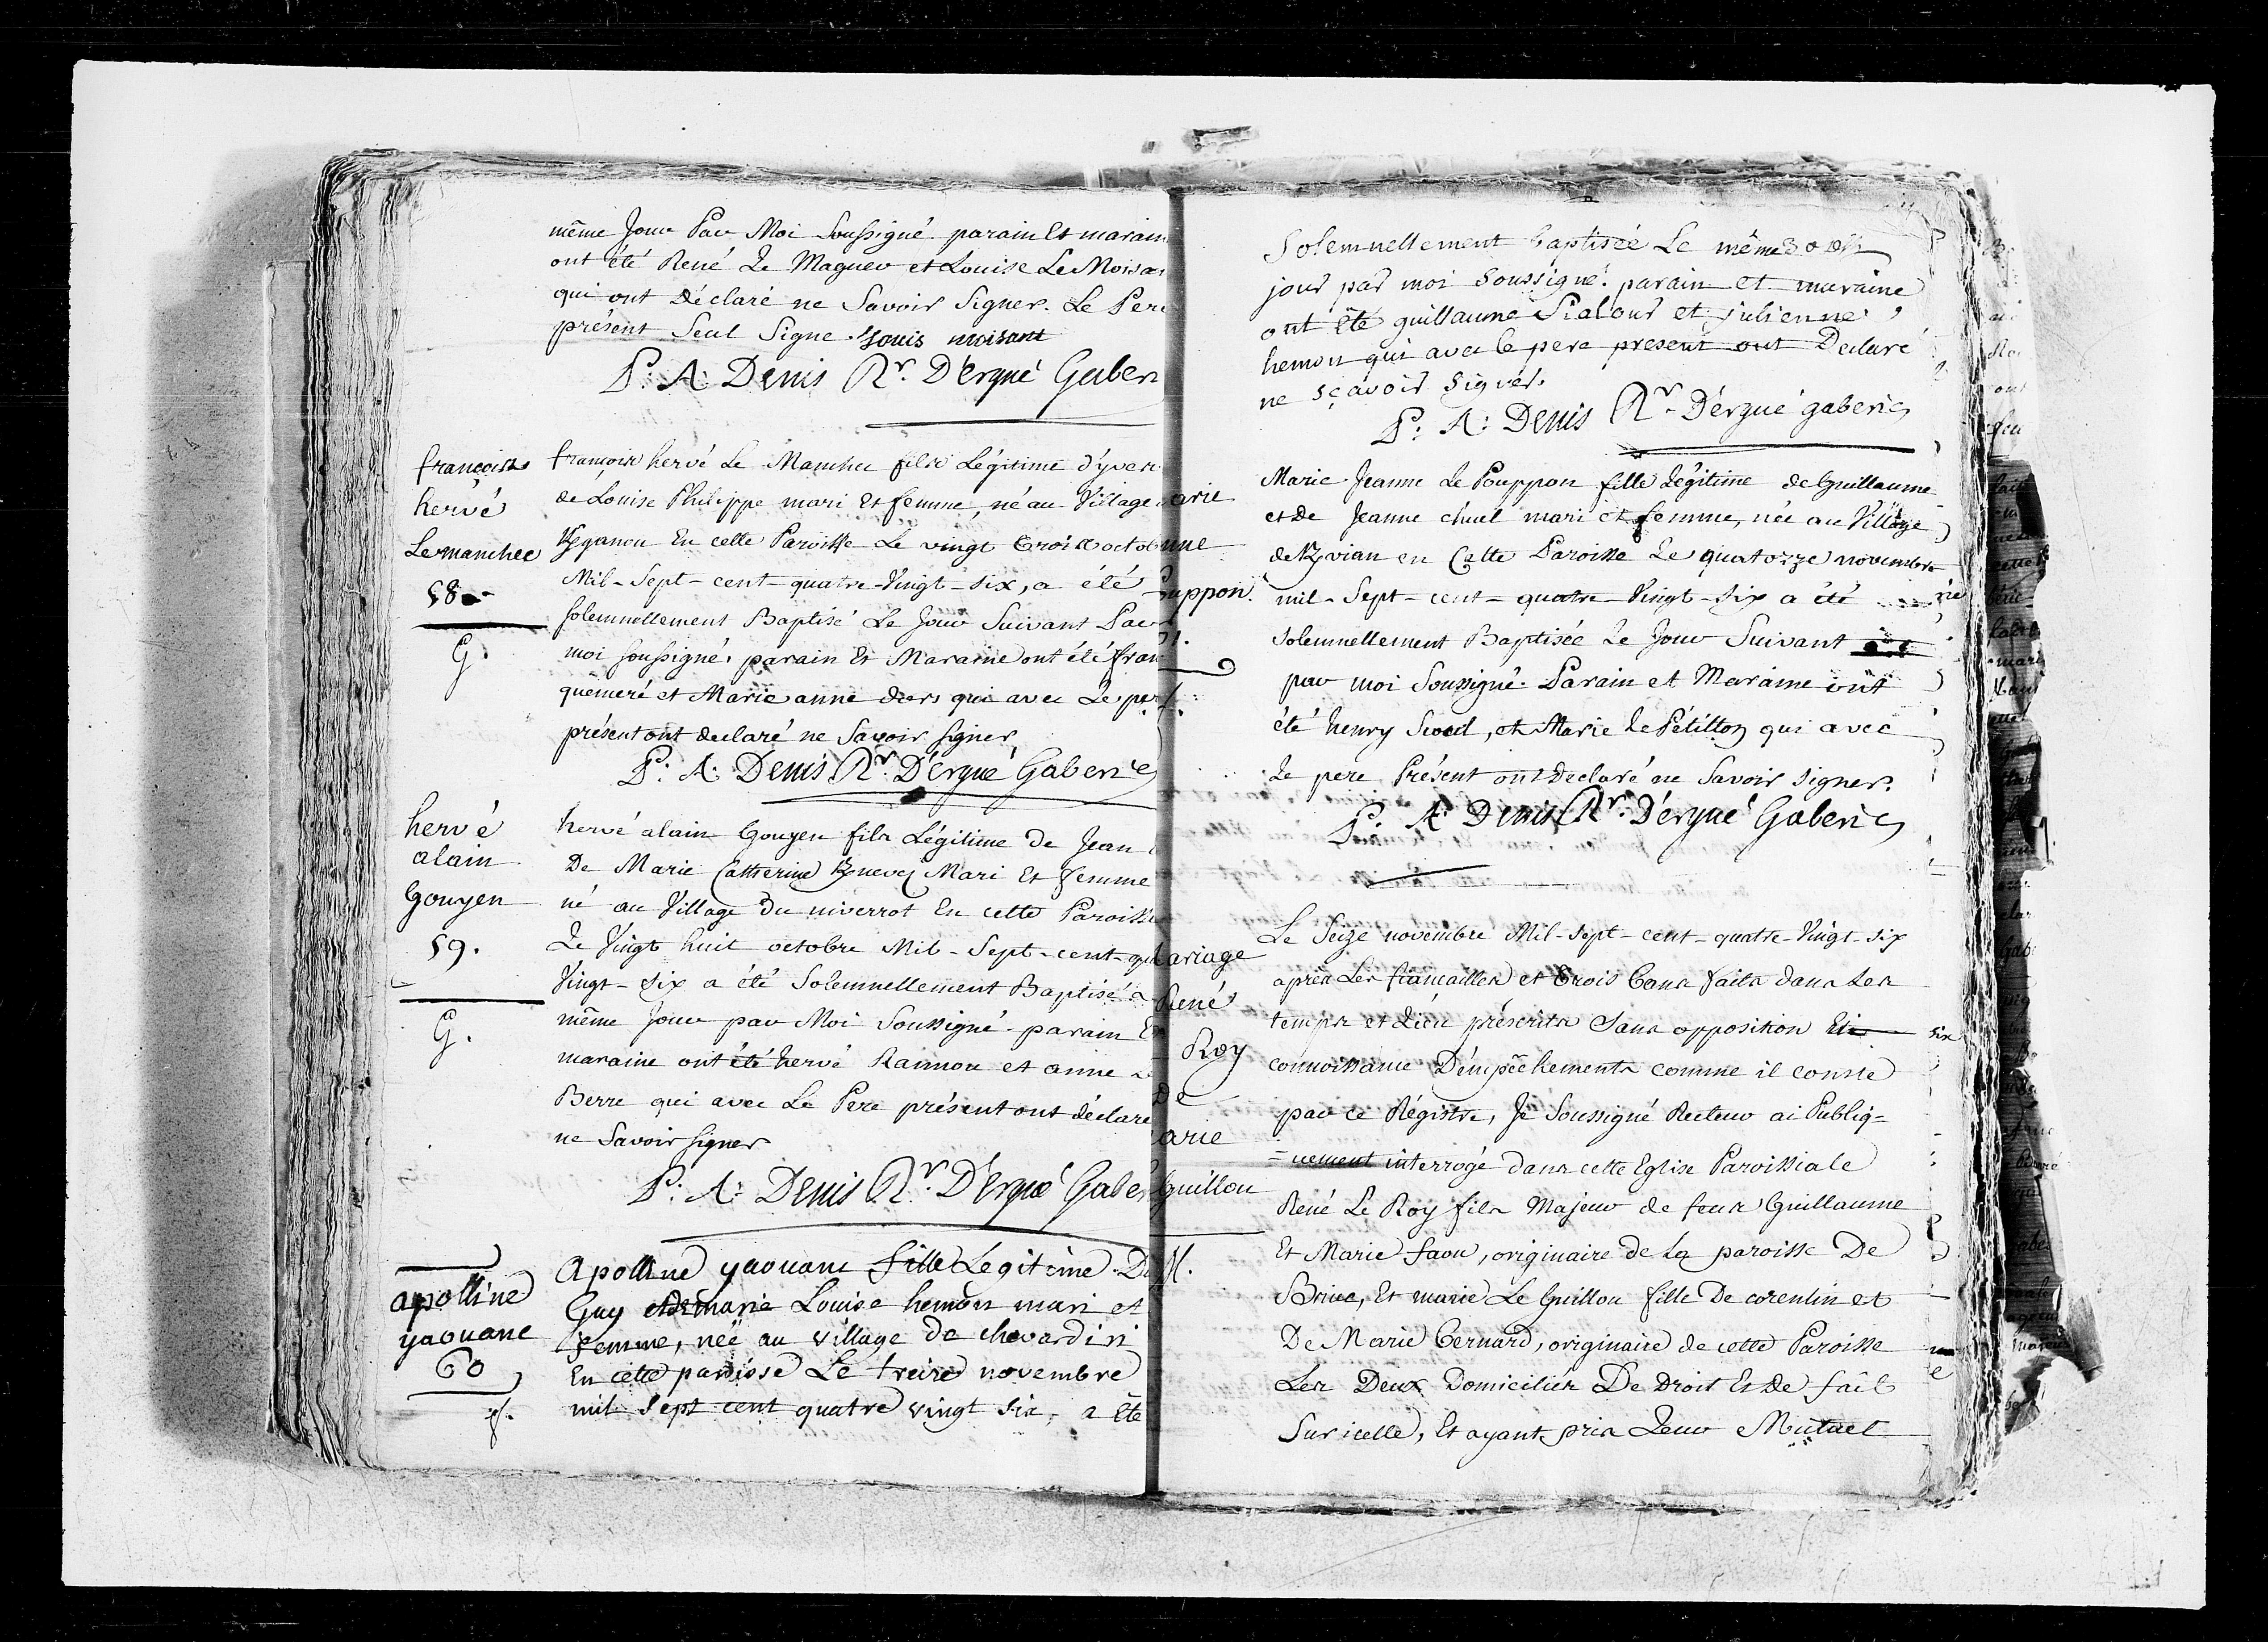 même Jour Par Moi Soussigné parain Et marain
ont été René Le Magueu et Louise Le Moisa
qui ont déclaré ne Savoir Signer. Le Pere
présent Seul Signe. Louis moisant
P: A: Denis Rr. D'Ergué Gaber
françois
hervé
Le manchec
58
G.
françois hervé Le Manchec fils Légitime d'yves
de Louise Philippe mari Et femme, né au Village
En cette Paroisse Le vingt trois octob
Mil-Sept-cent-quatre-Vingt-six, a été
solemnellement Baptisé Le Jour Suivant Par
moi soussigné. parain Et Maraine ont été fran
quémeré et Marie anne diers qui avec Le per
présent ont declaré ne Savoir signer
P: A: Denis Rr. D'Ergué Gaberic
hervé
alain
Gouyen
59.
G.
hervé alain Gouyen fils Légitime de Jean
De Marie Catherine Mari Et femme
né au Village du niverrot En cette Paroisse
Le Vingt huit octobre Mil-Sept-cent-qu
Vingt-six a été Solemnellement Baptisé
même Jour par Moi Soussigné. parain Et
maraine ont été hervé Rannou et anne
Berre qui avec Le Pere présent ont déclare
ne Savoir signer
P: A: Denis Rr. D'Ergué Gabe
apolline
yaouanc
60
Apolline yaouanc fille Legitime De
Guy et De marie Louise hemon mari et
femme, neë au village de
En cette paroisse Le treize novembre
mil sept cent quatre vingt six, a Ete
Solemnellement baptisée Le même
jour par moi soussigné. parain et maraine
ont été guillaume Sialour et julienne
hemon qui avec le pere present ont Declare
ne sçavoir signer.
P: A: Denis Rr. D'Ergué gaberic
arie
nne
uppon
Marie Jeanne Le Pouppon fille Légitime de Guillaume
et De Jeanne chuel mari et femme, née au Village
en Cette Paroisse Le quatorze novembre
mil-Sept-cent-quatre-Vingt-six a été
Solemnellement Baptisée Le Jour Suivant
par moi Soussigné. Parain et Maraine ont
été henry, et Marie Le Pétillon qui avec
Le pere Présent ont Declaré ne Savoir signer.
P: A: Denis Rr. D'Ergué Gaberic
ariage
René
Roy
De
arie
Guillou
M.
Le Seize novembre Mil-sept-cent-quatre-Vingt-six
après Les fiancailles et trois bans faits dans Les
temps et Lieu préscrits Sans opposition
connoissance D'émpêchements comme il conste
par ce Régistre, Je Soussigné Recteur ai Publiq=
=uement interrogé dans cette Eglise Paroissiale
René Le Roy fils Majeur de feus Guillaume
Et Marie faou, originaire de La paroisse De
Briec, Et marie Le Guillou fille De corentin et
De Marie Bernard, originaire de cette Paroisse
Les Deux Domiciliés De Droit Et De fait
Sur icelle, Et ayant pris Leur Mutuel